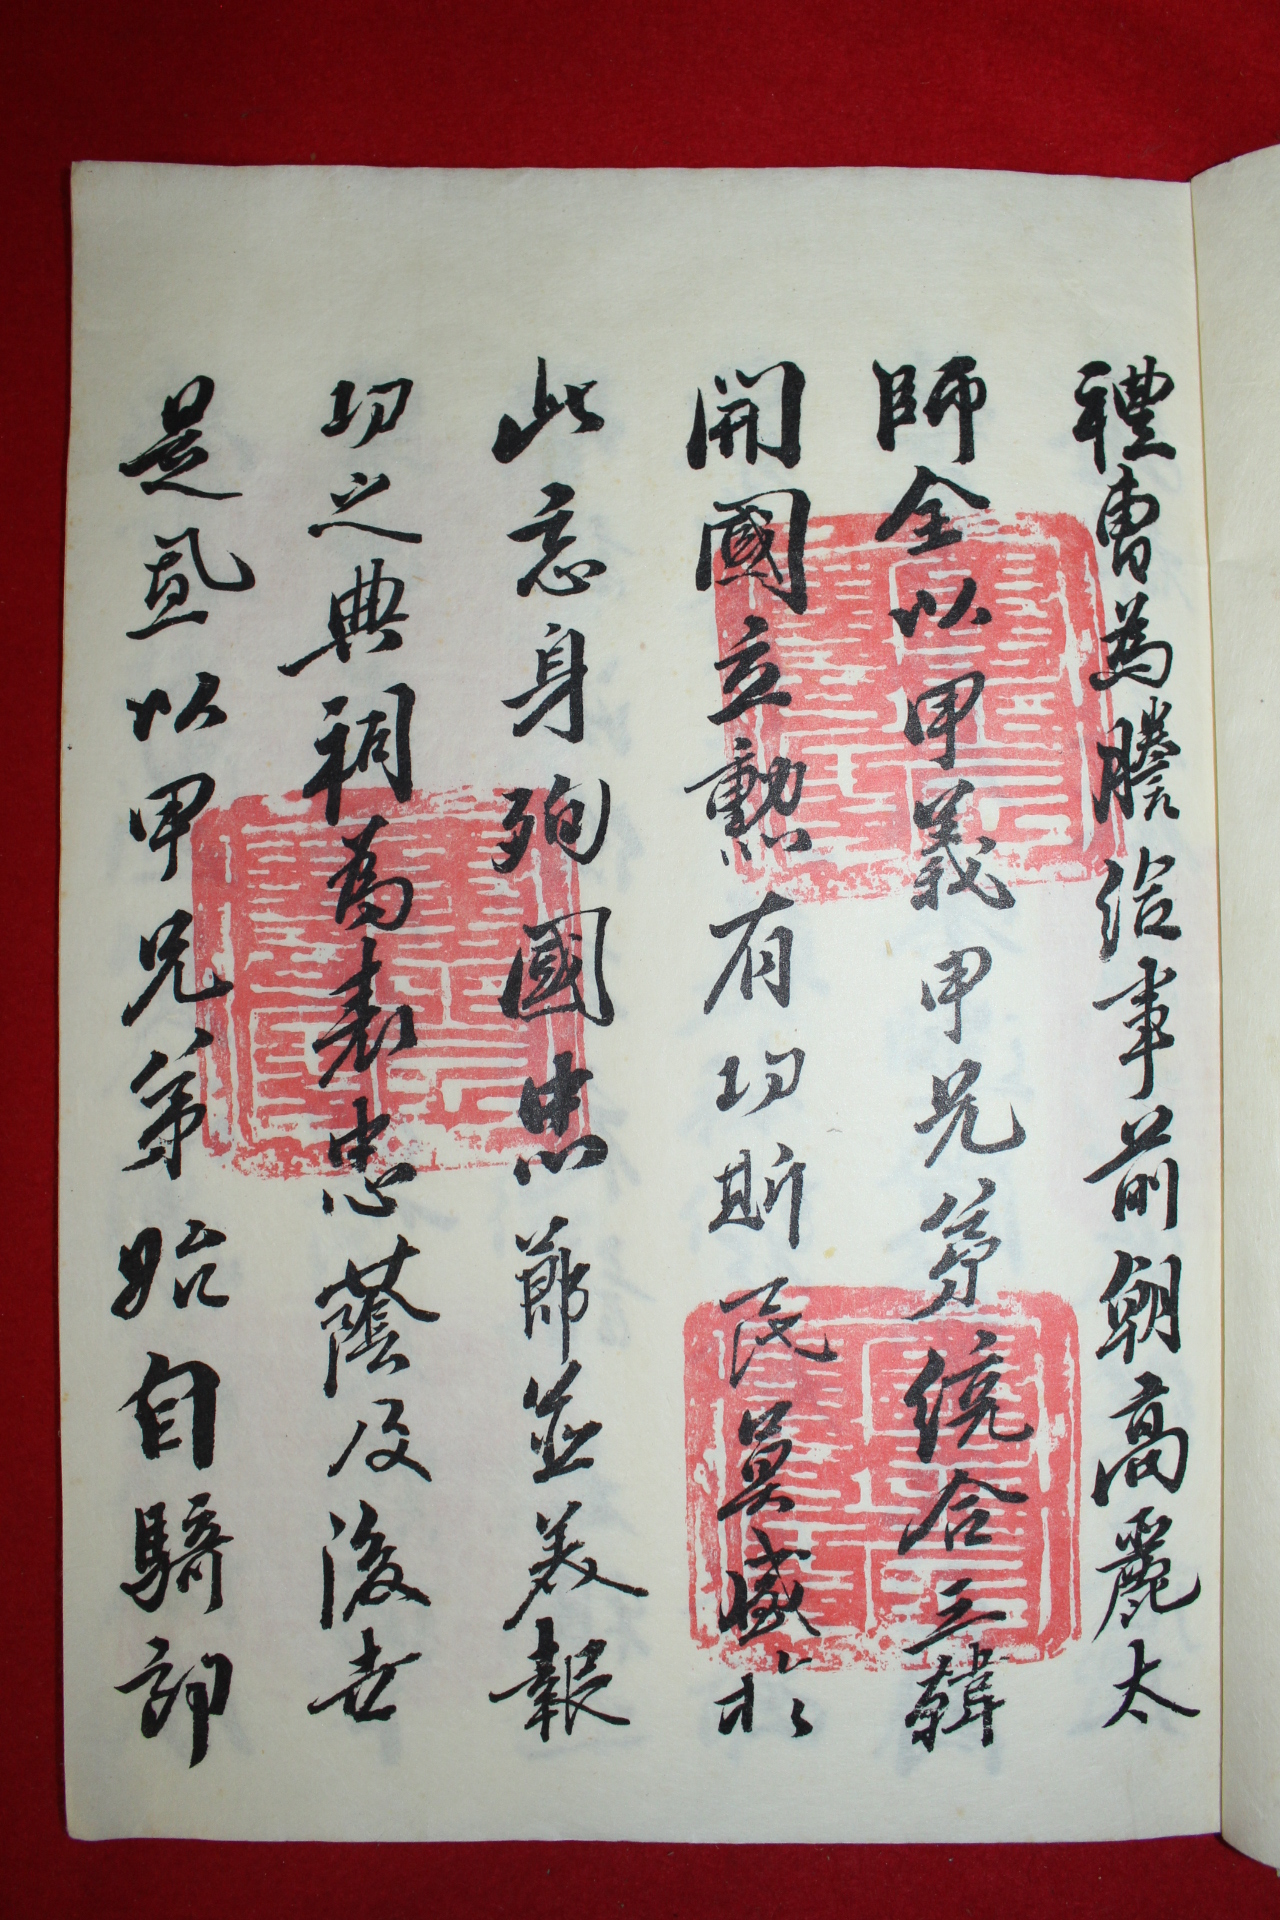 禮曹為謄給事前朝高麗太
師全以甲義甲兄弟統合三韓
開國立勳有功斯民莫盛於
此忘身殉國忠節並美報
功之典祠為表忠蔭及後世
是置以甲兄弟始自騎郎